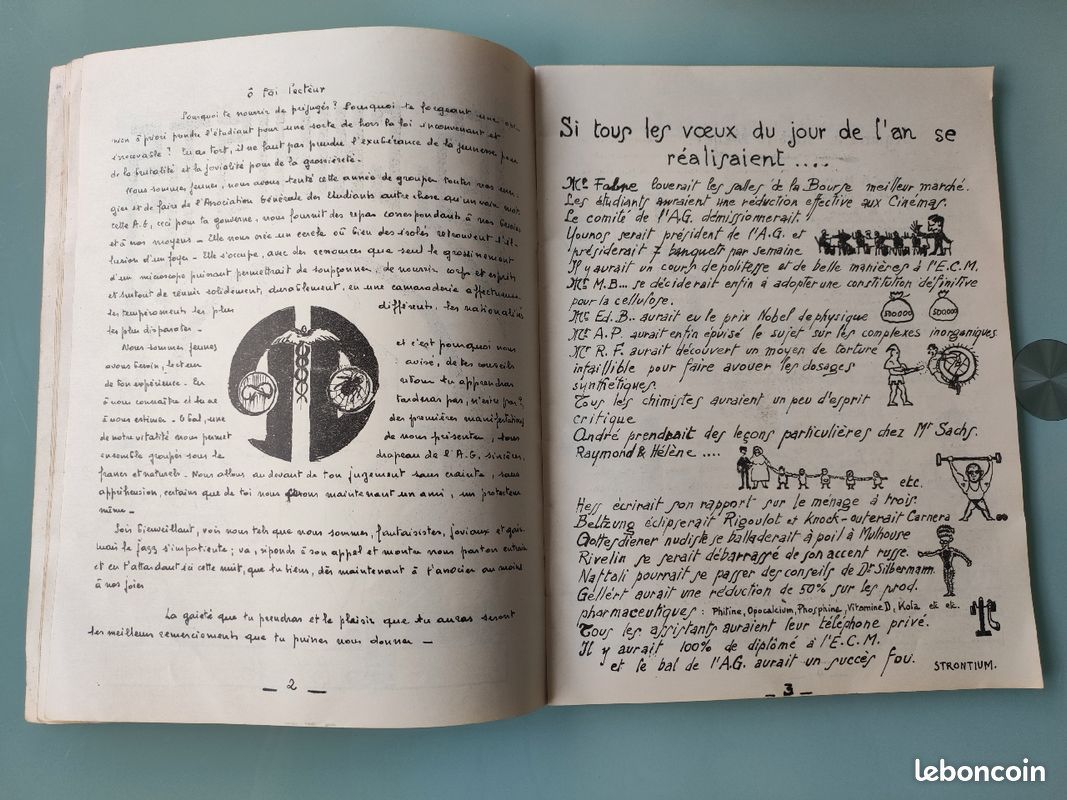 ô toi lecteur
Pourquoi te nourrir de préjugés? Pourquoi te forgeant une opi-
nion à priori prendre l'étudiant pour une sorte de hors la loi inconvenant et
Tu as tort, il ne faut pas prendre l'exubérance de la jeunesse pour
de la brutalité et la jovialité pour de la grossièreté.
Nous sommes jeunes, nous avons tenté cette année de grouper toutes nos éner-
gies et de faire de l'Association Générale des Etudiants autre chose qu'un vain mot.
Cette A.G, ceci pour ta gouverne, nous fournit des repas correspondants à nos besoins
et à nos moyens - Elle nous crée un cercle où bien des isolés retrouvent l'il-
lusion d'un foyer - Elle s'occupe, avec des que seul le grossissement
d'un microscope puissant permettrait de soupçonner, de nourrir corps et esprits
et surtout de réunir solidement, durablement, en une camaraderie affectueuse
les tempéraments les plus différents, les nationalités
les plus disparates -
Nous sommes jeunes et c'est pourquoi nous
avons besoin, lecteur avisé, de tes conseils
de ton expérience. En tu apprendras
à nous connaître et tu ne tarderas pas, n'est ce pas?,
à nous estimer - Ce bal, une des premières manifestations
de notre vitalité nous permet de nous présenter, tous
ensemble groupés sous le drapeau de l'A.G, sincères,
francs et naturels - Nous allons au devant de ton jugement sans crainte, sans
appréhension, certains que de toi nous ferons maintenant un ami, un protecteur
même -
Sois bienveillant, vois nous tels que nous sommes, fantaisistes, joviaux et gais.
Mais le jazz s'impatiente; va, réponds à son appel et montre nous par ton entrain
et en t'attardant ici cette nuit, que tu tiens, dès maintenant à t'associer au moins
à nos joies
La gaieté que tu prendras et le plaisir que tu auras seront
les meilleurs remerciements que tu puisses nous donner -
- 2 -
Si tous les vœux du jour de l'an se
réalisaient ....
Mr Fabre louerait les salles de la Bourse meilleur marché.
Les étudiants auraient une réduction effective aux Cinémas.
Le comité de l'A.G. démissionnerait.
Younos serait président de l'A.G. et
présiderait 7 banquets par semaine
Il y aurait un cours de politesse et de belle manières à l'E.C.M.
Mr M.B... se déciderait enfin à adopter une constitution définitive
pour la cellulose.
Mr Ed.B.. aurait eu le prix Nobel de physique
500000
500000
Mr A.P. aurait enfin épuisé le sujet sur les complexes inorganiques.
Mr R.F. aurait découvert un moyen de torture
infaillible pour faire avouer les dosages
synthétiques.
Tous les chimistes auraient un peu d'esprit
critique
André prendrait des leçons particulières chez Mr Sachs.
Raymond & Hélène ....
etc.
Hess écrirait son rapport sur le ménage à trois.
Beltzung éclipserait Rigoulot et Knock-outerait Carnera
Gottesdiener nudiste se balladerait à poil à Mulhouse
Rivelin se serait débarrassé de son accent russe.
Naftali pourrait se passer des conseils de Dr Silbermann.
Gellert aurait une réduction de 50% sur les prod.
pharmaceutiques : Phitine, Opocalcium, Phosphine, Vitamine D, Kola etc etc.
Tous les assistants auraient leur téléphone privé.
Il y aurait 100% de diplômé à l'E.C.M.
et le bal de l'A.G. aurait un succès fou.
STRONTIUM.
- 3 -
leboncoin